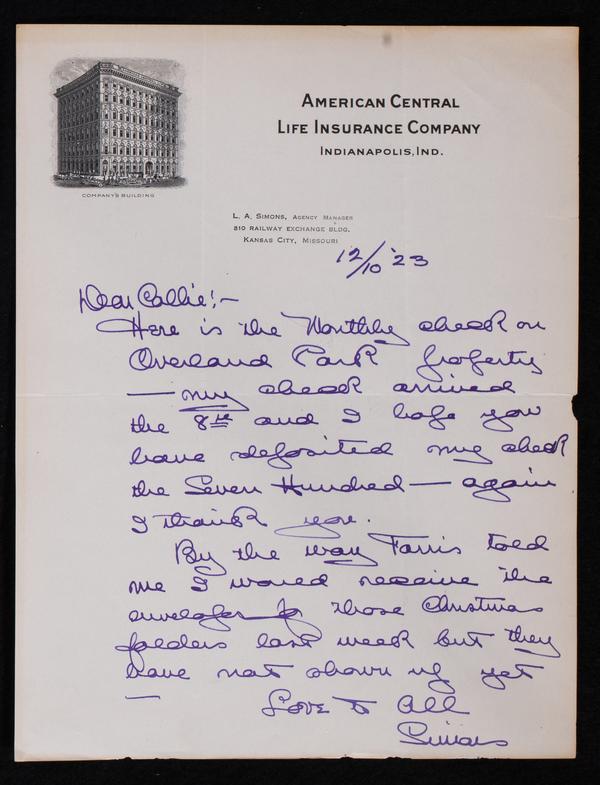 AMERICAN CENTRAL
LIFE INSURANCE COMPANY
INDIANAPOLIS, IND.
COMPANY'S BUILDING
L. A. SIMONS, AGENCY MANAGER
810 RAILWAY EXCHANGE BLDG.
KANSAS CITY, MISSOURI
12/10 '23
Dear Callie:-
Here is the Monthly check on
Overland Park property
— my check arrived
the 8th and I hope you
have deposited my check
the Seven Hundred — again
I thank you.
By the way Farris told
me I would receive the
envelopes for those Christmas
folders last week but they
have not shown up yet
—
Love to All
Simons